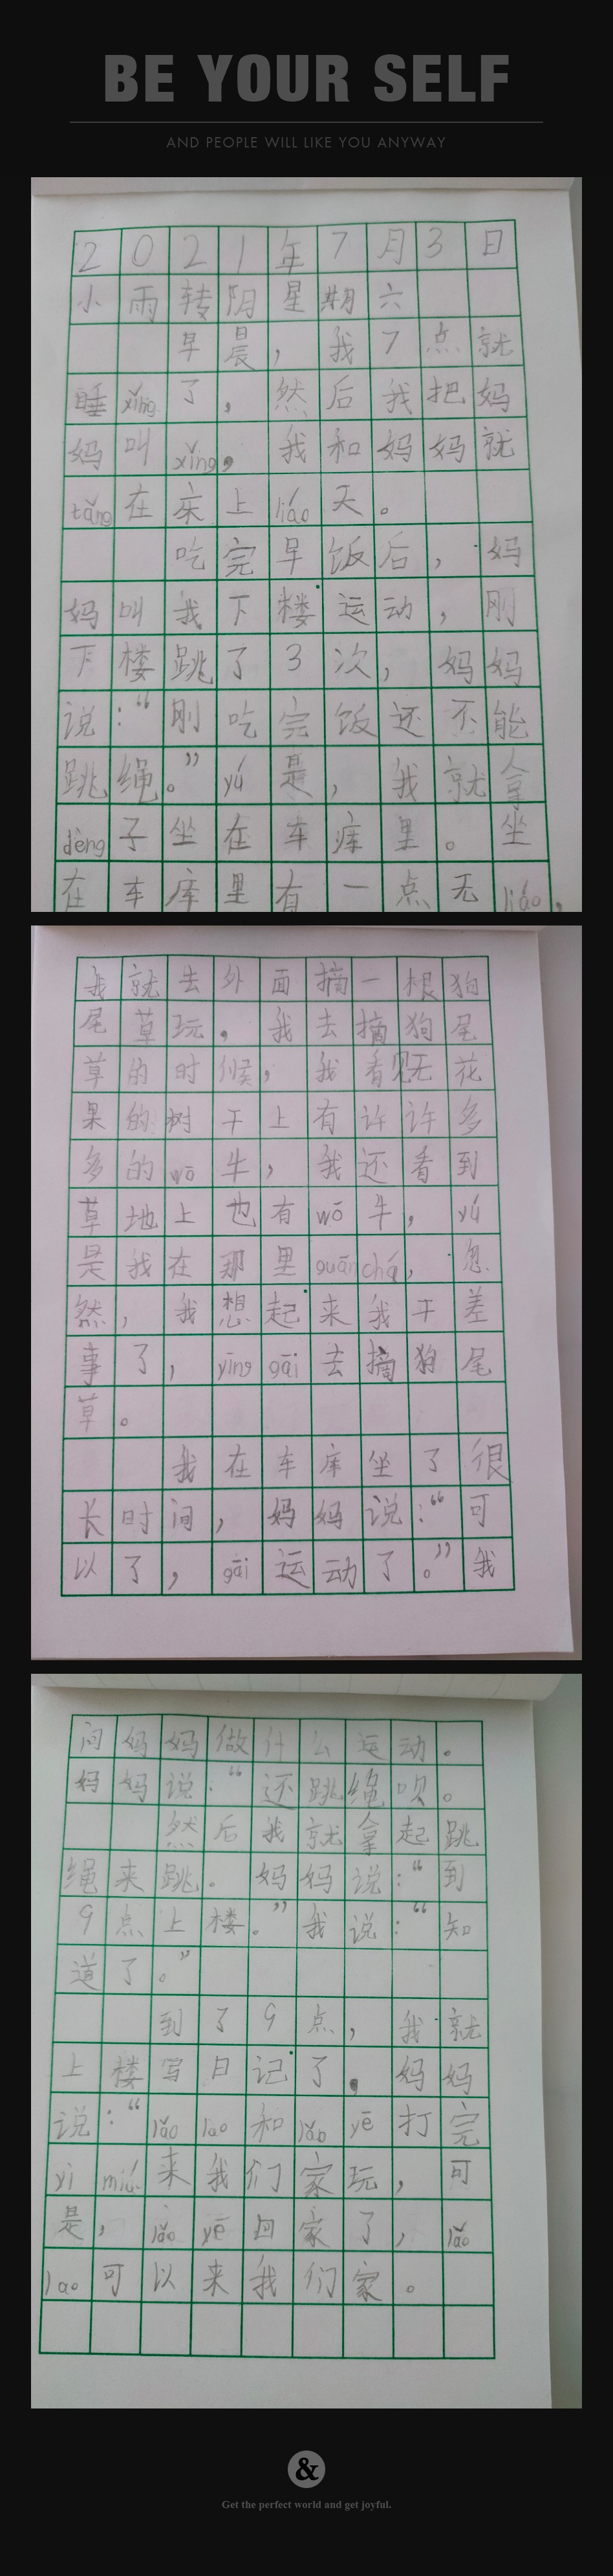 BE YOUR SELF
AND PEOPLE WILL LIKE YOU ANYWAY
2021年7月3日
小雨转阴星期六
早晨，我7点就
睡xǐng了，然后我把妈
妈叫xǐng，我和妈妈就
tǎng在床上liáo天。
吃完早饭后，妈
妈叫我下楼运动，刚
下楼跳了3次，妈妈
说：“刚吃完饭还不能
跳绳。”yú是，我就拿
dèng子坐在车库里。坐
在车库里有一点无liáo，
我就去外面摘一根狗
尾草玩，我去摘狗尾
草的时候，我看见无花
果的树干上有许许多
多的wō牛，我还看到
草地上也有wō牛，yú
是我在那里guānchá，忽
然，我想起来我干差
事了，yīng gāi去摘狗尾
草。
我在车库坐了很
长时间，妈妈说：“可
以了，gāi运动了。”我
问妈妈做什么运动。
妈妈说：“还跳绳呗。
然后我就拿起跳
绳来跳。妈妈说：“到
9点上楼。”我说：“知
道了。”
到了9点，我就
上楼写日记了，妈妈
说：“lǎo lao和lǎo yē打完
yì miáo来我们家玩，可
是，lǎo yē回家了，lǎo
lao可以来我们家。
&
Get the perfect world and get joyful.